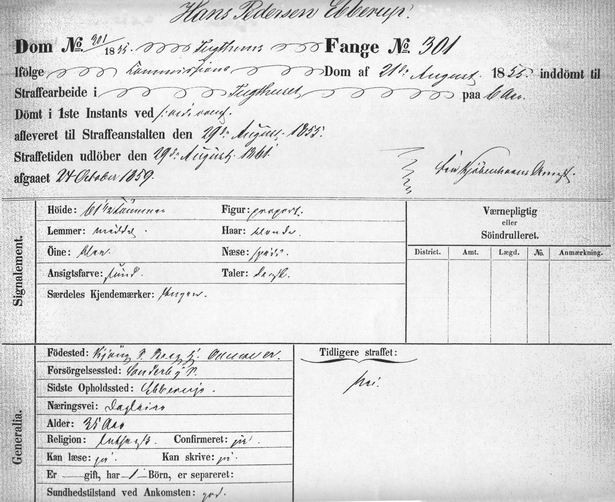 Hans Pedersen Ebberup.
Dom No. 301/1855 Tugthuus Fange No 301
Ifölge Commissions Dom af 21de August 1855 inddömt til
Straffearbeide i Tugthuset paa 6 Aar.
Dömt i 1ste Instants ved
afleveret til Straffeanstalten den 29de August 1855.
Straffetiden udlöber den 29de August 1861.
afgaaet 24 October 1859. Kjöbenhavns
Signalement.
Höide: 61 1/2 Tommer Figur: proport.
Lemmer: middel Haar: blonde
Öine: blaa Næse: spids
Ansigtsfarve: sund Taler: Dansk
Særdeles Kjendemærker: Ingen.
Værnepligtig
eller
Söindrulleret.
District. Amt. Lægd. No. Anmærkning.
Generalia.
Födested:
Forsörgelsessted:
Sidste Opholdssted: Ebberup
Næringsvei: Dagleier
Alder: Aar
Religion: luthersk. Confirmeret: ja.
Kan læse: ja. Kan skrive: ja.
Er gift, har 1 Börn, er separeret:
Sundhedstilstand ved Ankomsten: god.
Tidligere straffet:
Nei.